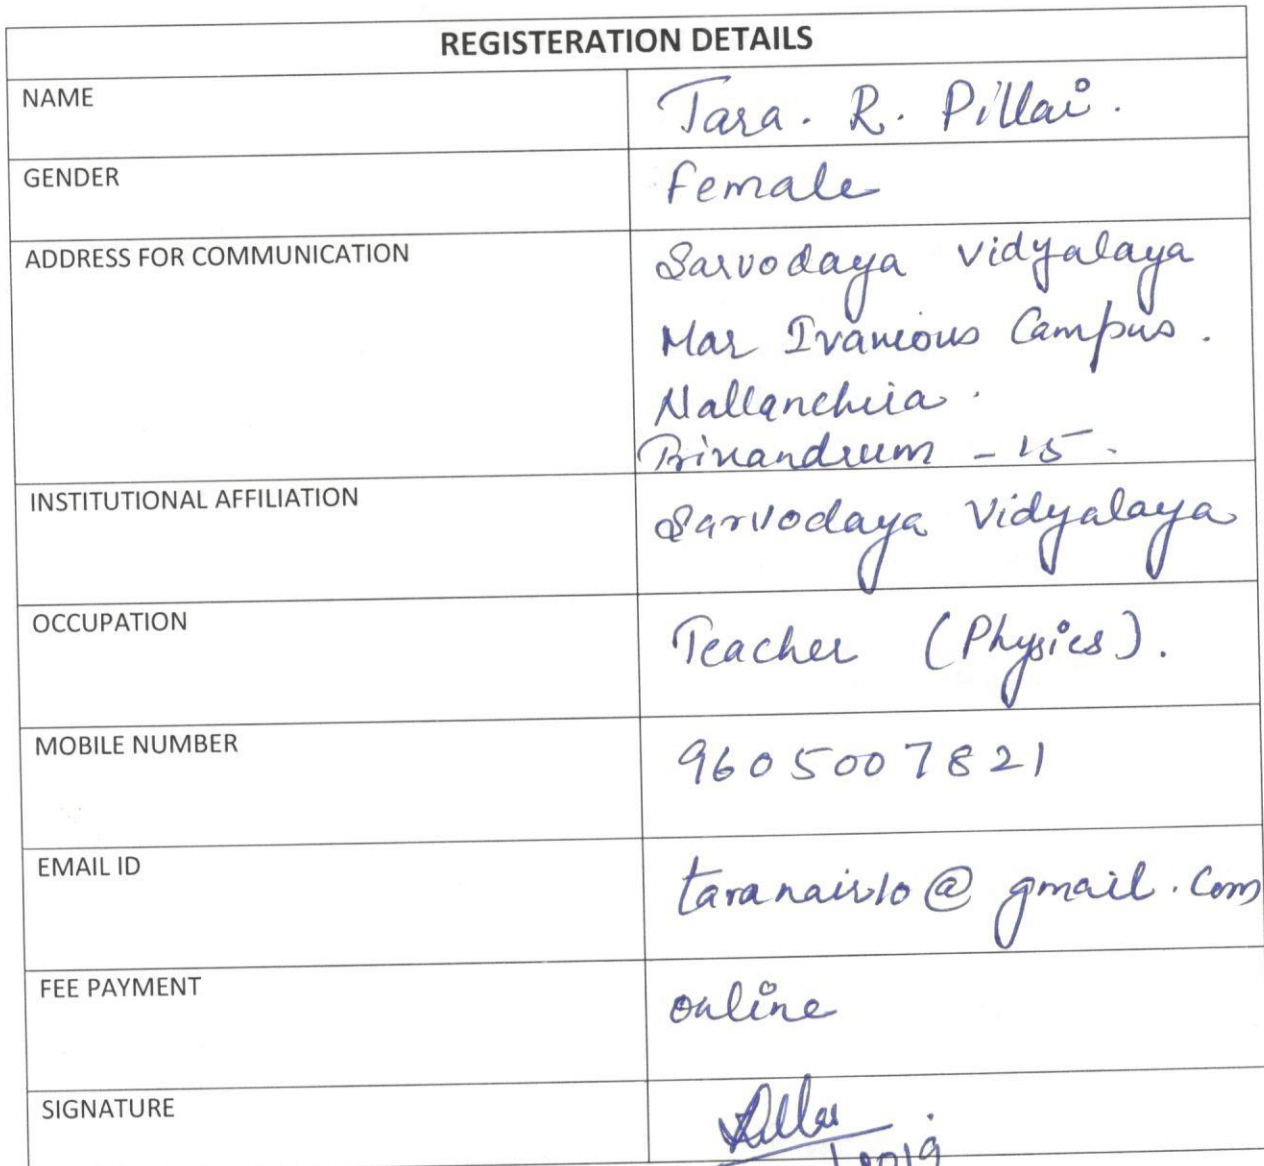 REGISTERATION DETAILS
NAME
Tara. R. Pillai.
GENDER
Female
ADDRESS FOR COMMUNICATION
Sarvodaya Vidyalaya
Mar Ivanious Campus.
Nallanchira.
Trivandrum - 15.
INSTITUTIONAL AFFILIATION
Sarvodaya Vidyalaya
OCCUPATION
Teacher (Physics).
MOBILE NUMBER
9605007821
EMAIL ID
taranair10@gmail.com
FEE PAYMENT
online
SIGNATURE